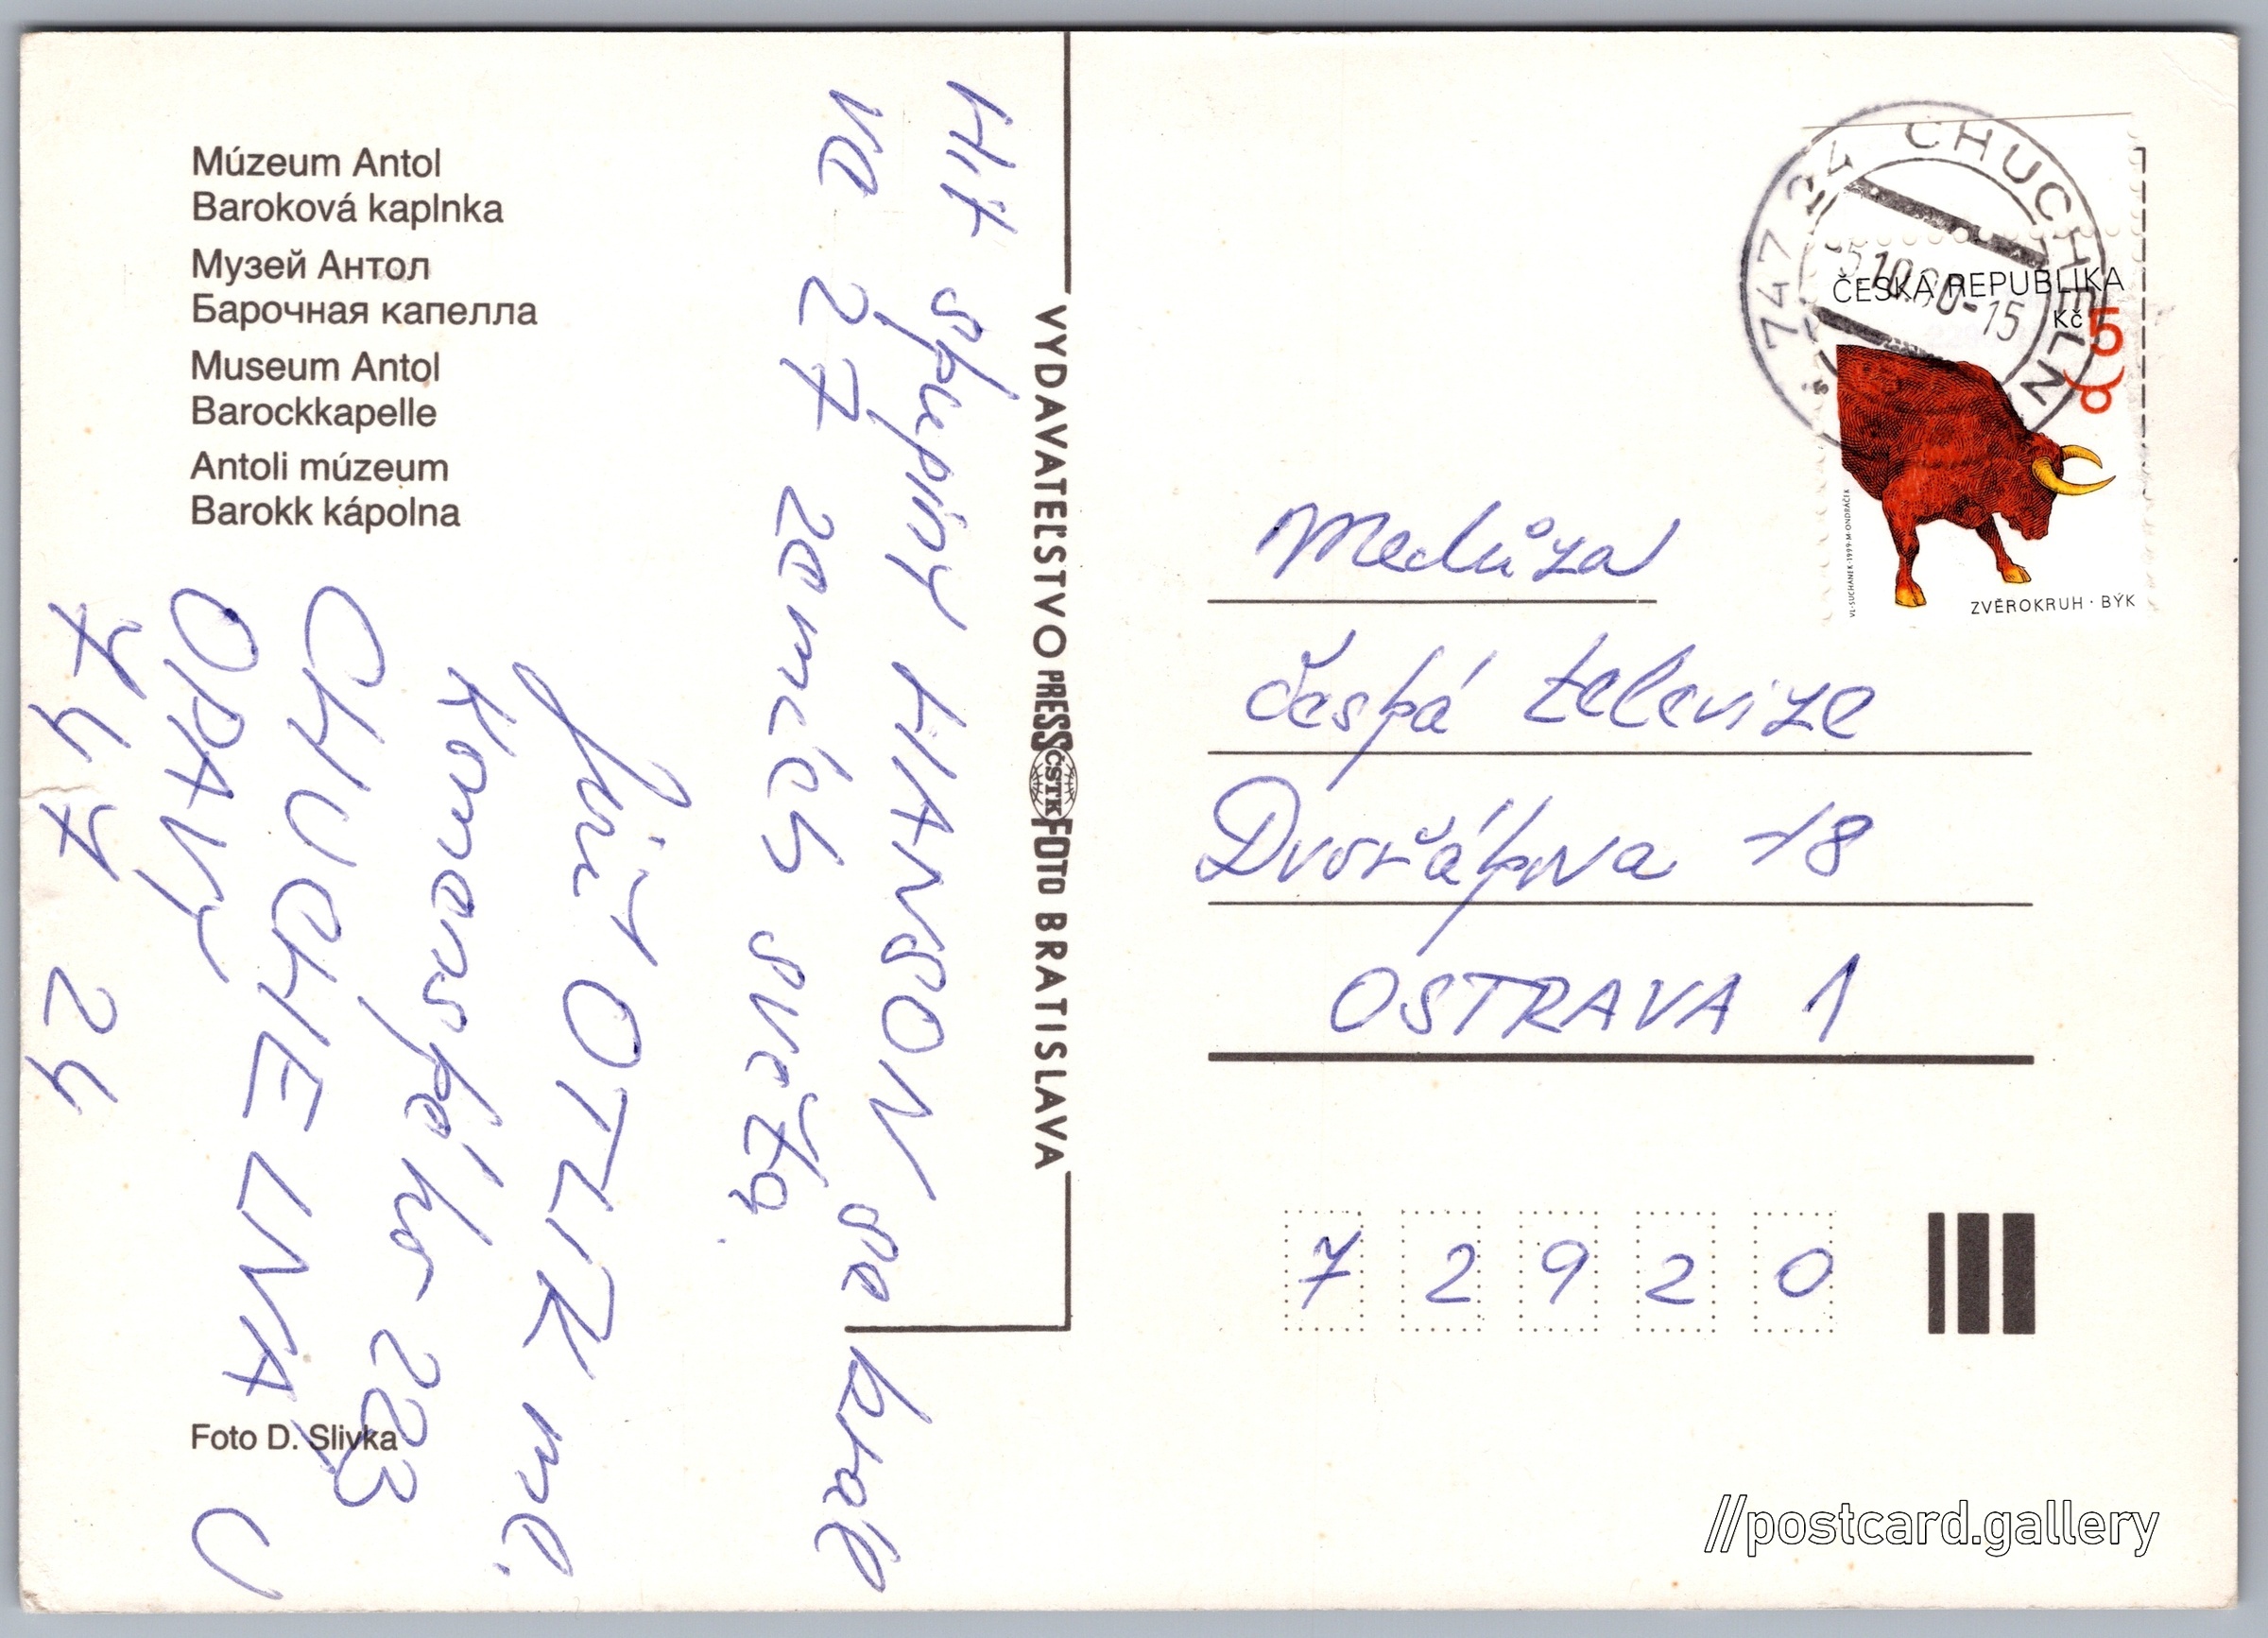 Múzeum Antol
Baroková kaplnka
Музей Антол
Барочная капелла
Museum Antol
Barockkapelle
Antoli múzeum
Barokk kápolna
Foto D. Slivka
Hit skupiny HANSON se hrál
va 27 zemích světa.
Jiří OTLIK ml.
Komenského 223
CHUCHELNÁ U
OPAVY
747 24
VYDAVATEĽSTVO PRESSČSTKFOTO BRATISLAVA
747 24 CHUCHELNÁ
-5.10.00-15
ČESKÁ REPUBLIKA
Kč 5
VL·SUCHÁNEK·1999·M·ONDRÁČEK
ZVĚROKRUH · BÝK
Medůza
Česká televize
Dvořákova 18
OSTRAVA 1
72920
//postcard.gallery